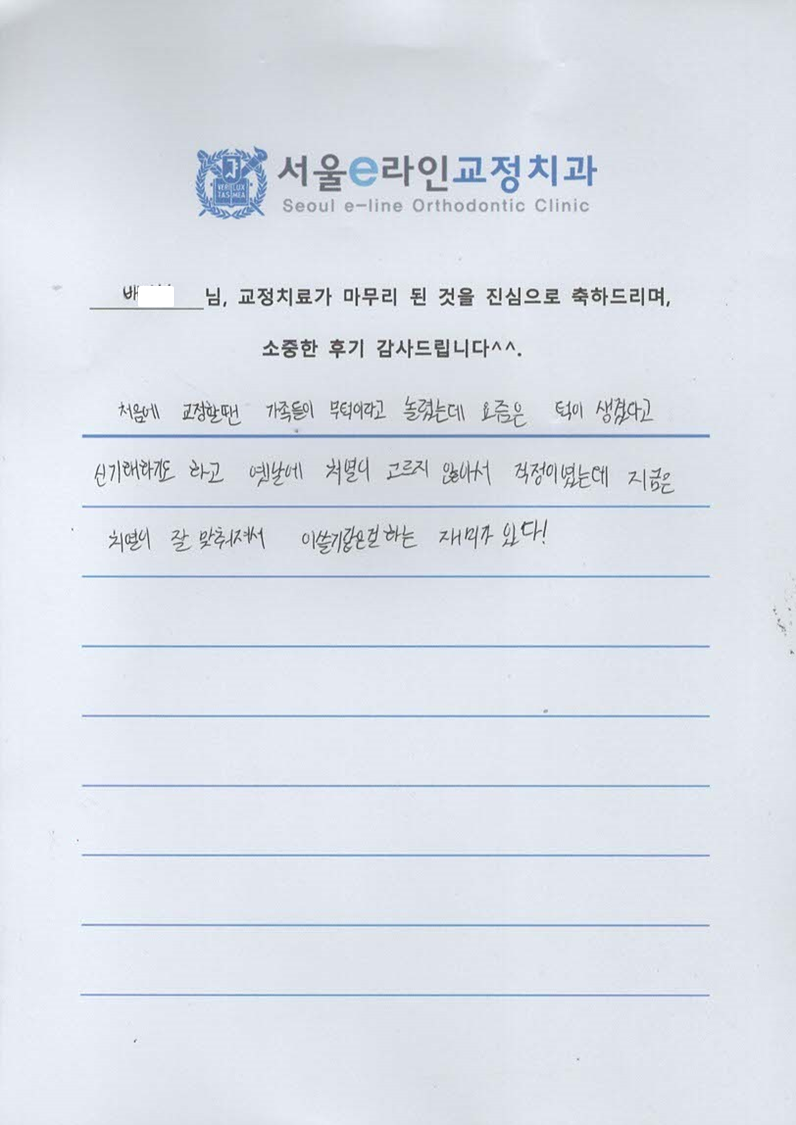 서울e라인교정치과
Seoul e-line Orthodontic Clinic
VERI LUX
TAS MEA
배 님, 교정치료가 마무리 된 것을 진심으로 축하드리며,
소중한 후기 감사드립니다^^.
처음에 교정할땐 가족들이 무턱이라고 놀렸는데 요즘은 턱이 생겼다고
신기해하기도 하고 옛날에 치열이 고르지 않아서 걱정이였는데 지금은
치열이 잘 맞춰져서 이쓸기같은걸 하는 재미가 있다!